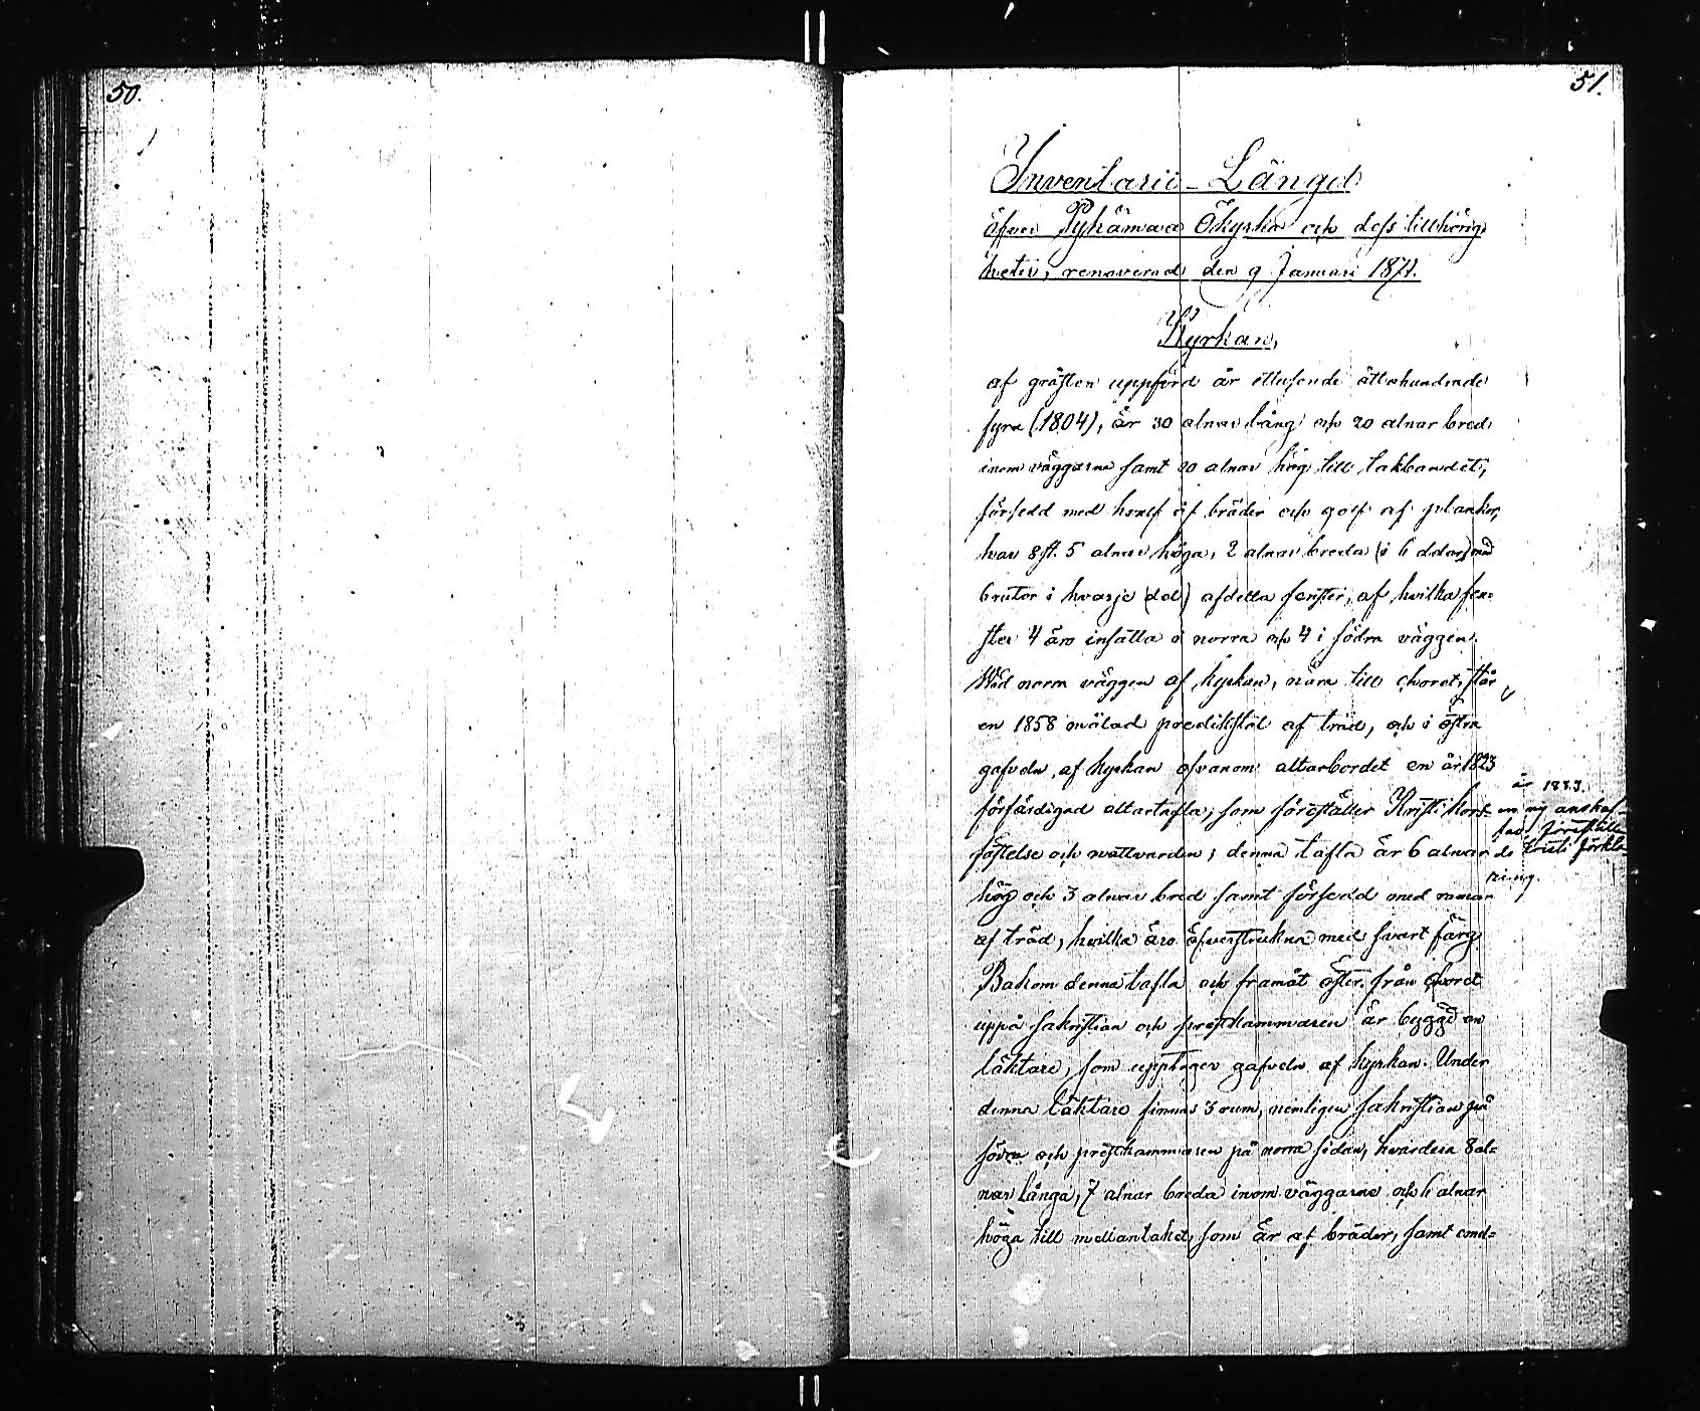 50.
51.
Inventarii-Längd
öfver Pyhämaa Ökyrka och dess tillhörig
heter, renoverad den 9 Januari 1871.
Kyrkan,
af gråsten uppförd år ettusende åttahundrade
fyra (1804), är 30 alnar lång och 20 alnar bred
inom väggarna samt 20 alnar hög till takbandet,
försedd med hvalf af bräder och golf af plankor,
har 8 st. 5 alnar höga, 2 alnar breda (i 6 delar) med
brutor i hvarje (del) afdelta fenster, af hvilka fen=
ster 4 äro insatta i norra och 4 i södra väggen.
Wid norra väggen af kyrkan, nära till choret, står
en 1858 målad predikstol af träd, och i östra
gafveln af kyrkan ofvanom altarbordet en år 1823
förfärdigad altartafla, som föreställer Kristi kors=
fästelse och nattvarden; denna tafla är 6 alnar
hög och 3 alnar bred samt försedd med ramar
af träd, hvilka äro öfverstrukna med svart färg
Bakom denna tafla och framåt öster från choret
uppå sakristian och prestkammaren är byggd en
läktare, som upptager gafveln af kyrkan. Under
denna läktare finnas 3 rum, nemligen sakristian på
södra och prestkammaren på norra sidan, hvardera 8 al=
nar långa, 7 alnar breda inom väggarne och 6 alnar
höga till mellantaket, som är af bräder, samt emel=
år 1883.
en ny anskaf=
fad, föreställan
de Kristi förkla
ring.